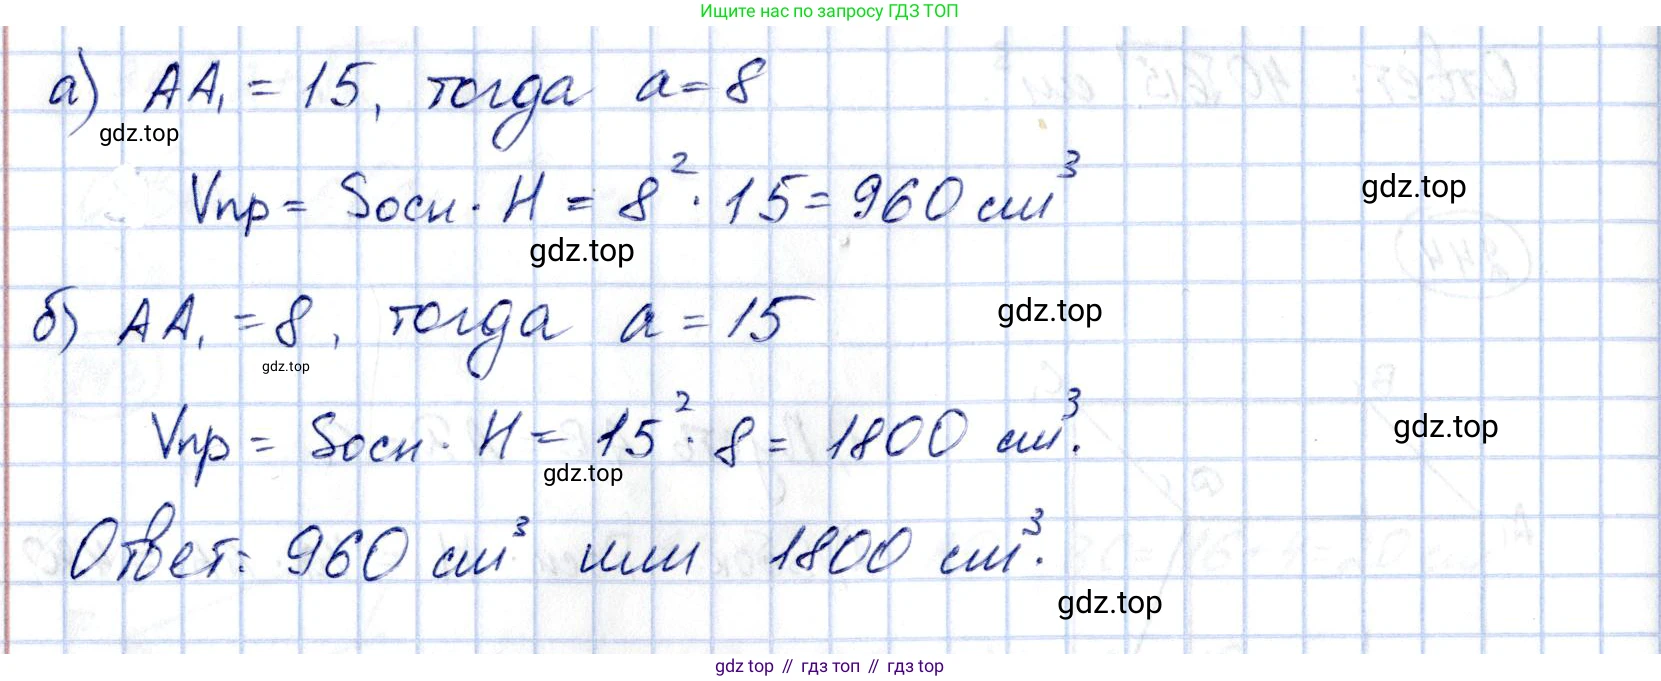 Ищите нас по запросу ГДЗ ТОП
а) AA₁ = 15, тогда a = 8
gdz.top
Vпр = Sосн · H = 8² · 15 = 960 см³
gdz.top
gdz.top
б) AA₁ = 8, тогда a = 15
gdz.top
gdz.top
Vпр = Sосн · H = 15² · 8 = 1800 см³.
gdz.top
gdz.top
Ответ: 960 см³ или 1800 см³.
gdz.top
gdz top // гдз топ // gdz top